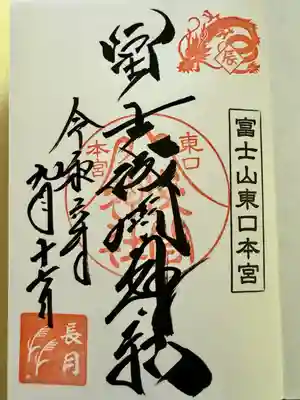 辰
富士山東口本宮
冨士浅間神社
東口
本宮
令和六年
九月十六日
長月